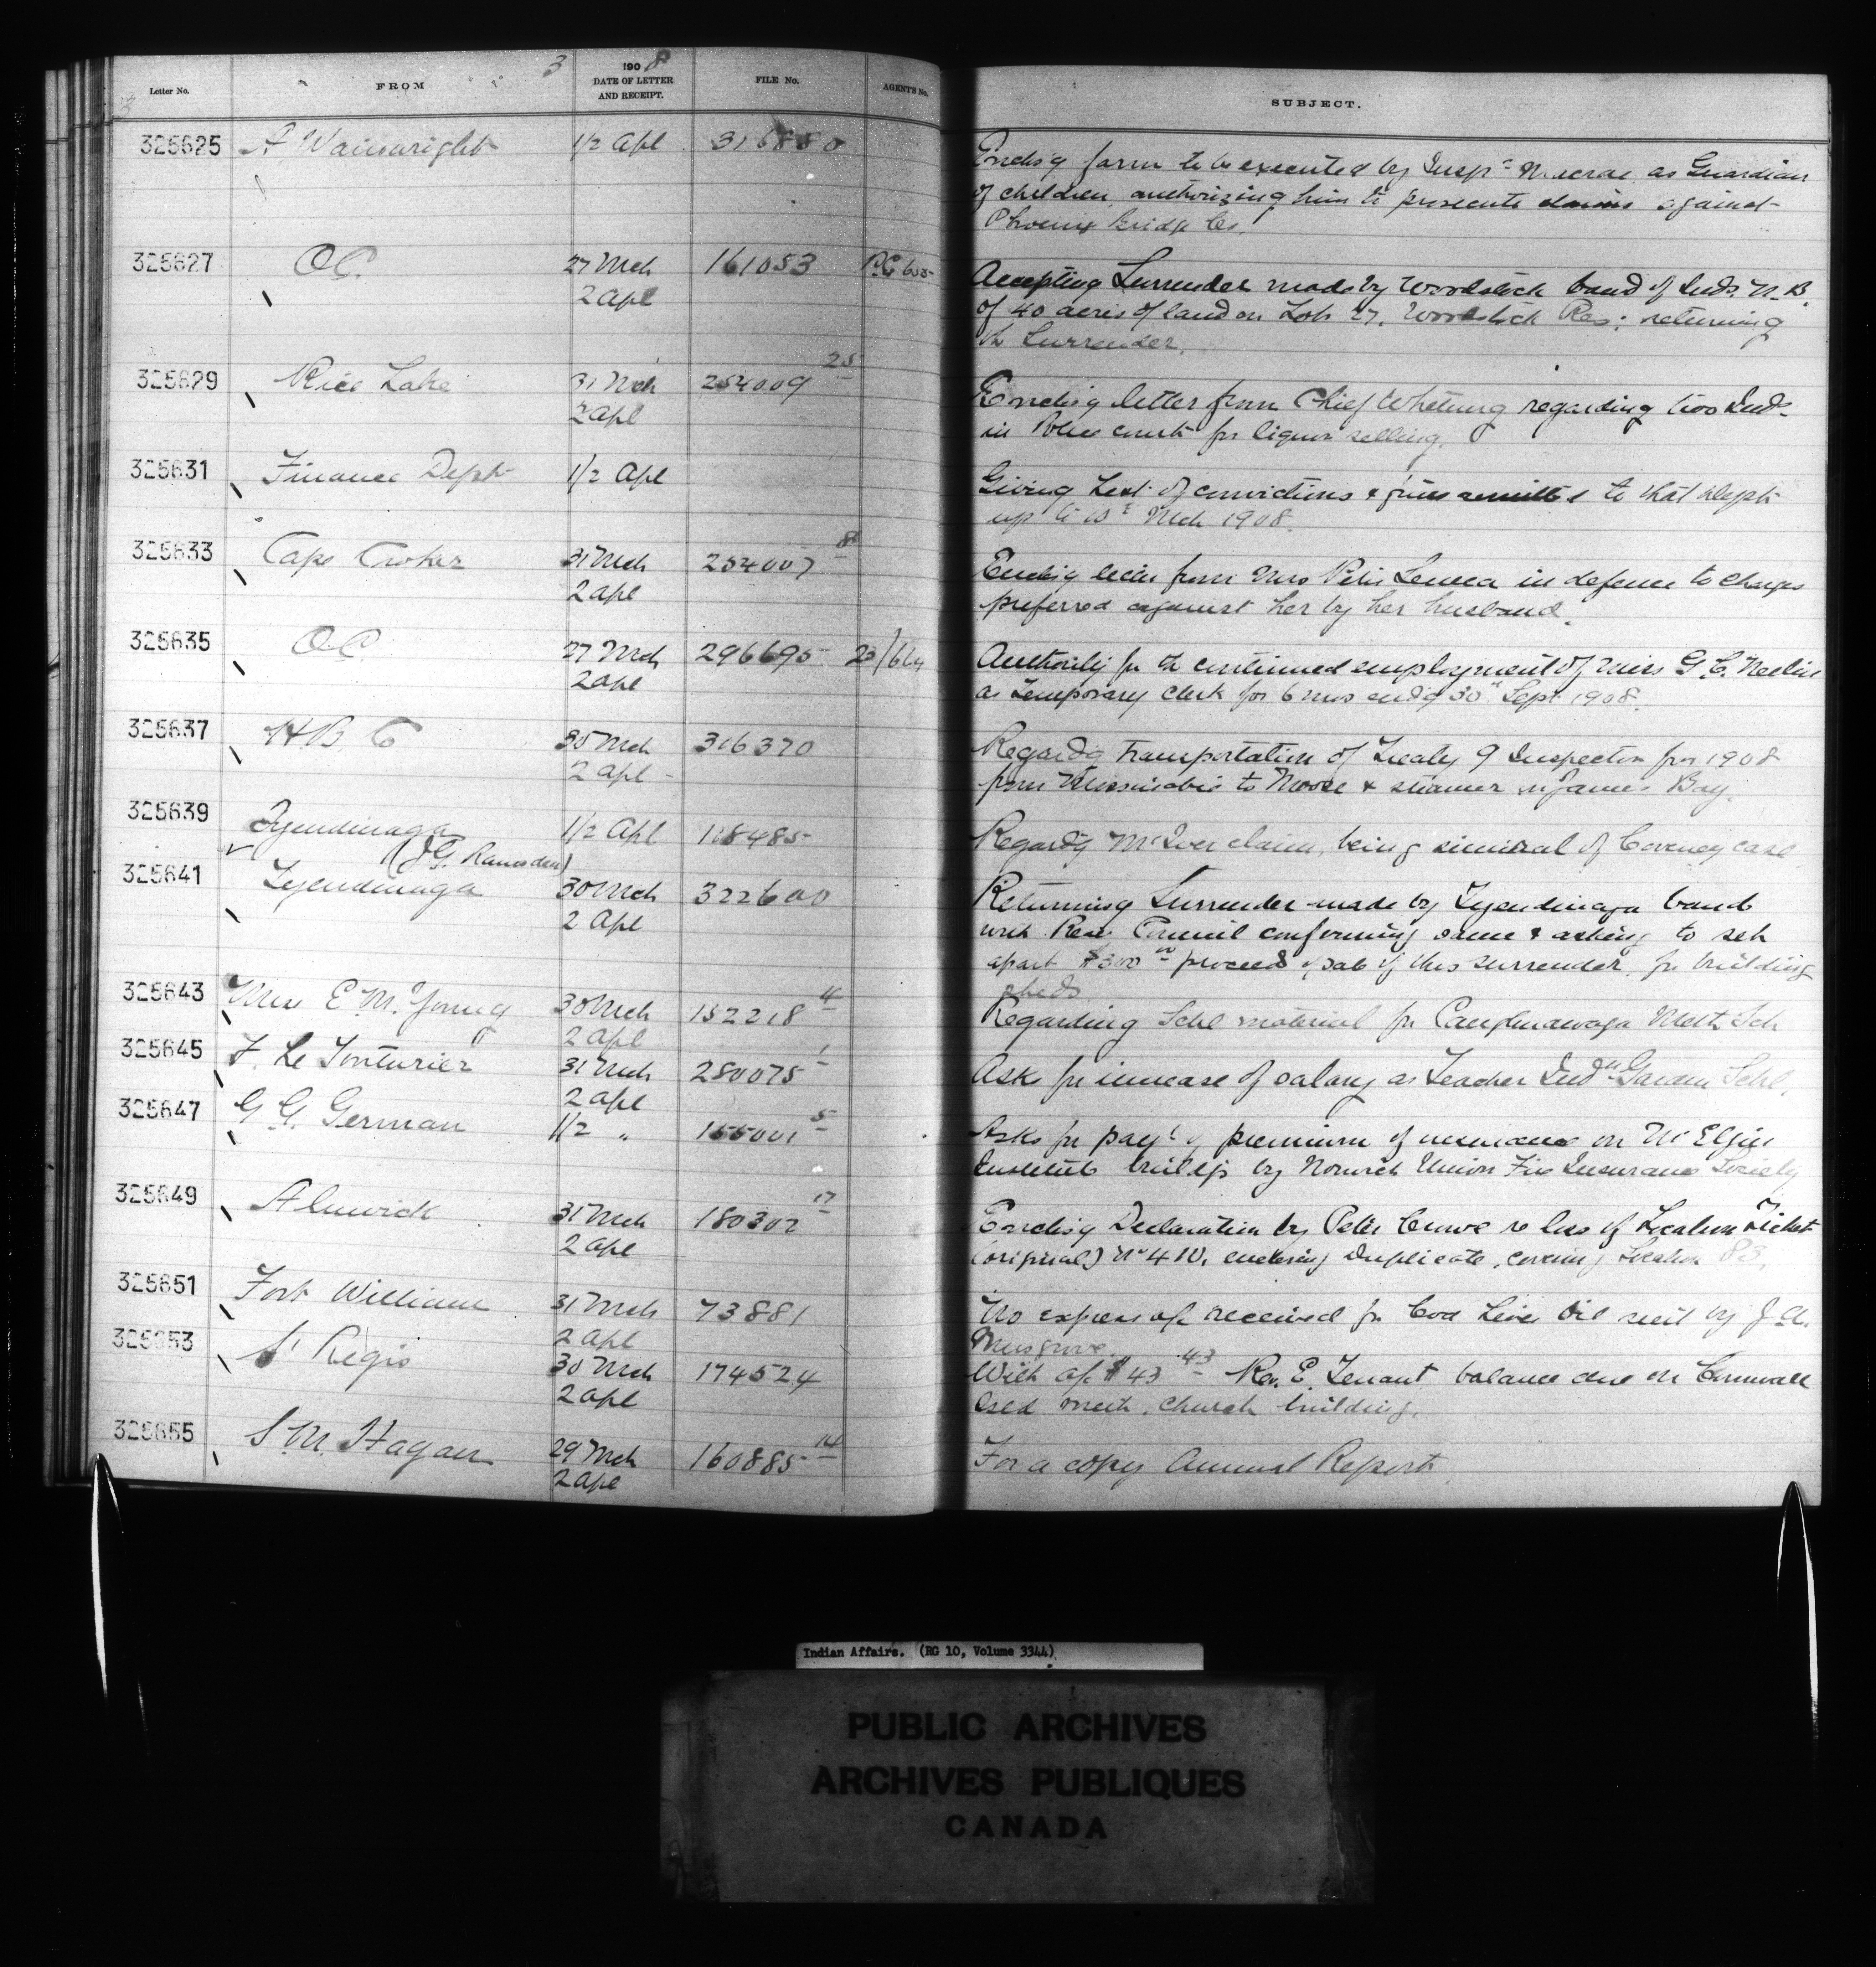 3
Letter No. FROM 1908 DATE OF LETTER AND RECEIPT. FILE No. AGENT'S No. SUBJECT.
325625 A Wainwright 1/2 Apl 316880 Encls'g form to be executed by Insp^r Macrae as Guardian
of children authorizing him to prosecute claims against
Phoenix Bridge Co.
325627 O.C. 27 Mch 161053 P.C. Accepting Surrender made by Woodstock band of Inds. N.B.
2 Apl of 40 acres of land on Lot 27, Woodstock Res: returning
th Surrender.
325629 Rice Lake 31 Mch 254009 25 Encls'g letter from Chief Whetung regarding two Inds
2 Apl in Police court for liquor selling.
325631 Finance Dept 1/2 Apl Giving List of convictions & fines remitted to that Dept
up to Mch 1908.
325633 Cape Croker 31 Mch 254007 8 Encls'g letter from Mrs Peter in defence to charges
2 Apl preferred against her by her husband.
325635 O.C. 27 Mch 296695 23/664 Authority for th continued employment of Miss G.C.
2 Apl as Temporary Clerk for 6 mos end'g 30th Sept 1908.
325637 H B Co 30 Mch 316370 Regard'g transportation of Treaty 9 Inspector for 1908
2 Apl from Missinabie to Moose & steamer in James Bay.
325639 Tyendinaga 1/2 Apl 118485 Regard'g McIver claim, being similar of Coveney case
(J.G. Ramsden)
325641 Tyendinaga 30 Mch 322600 Returning Surrender made by Tyendinaga band
2 Apl with Res. Council confirming same & asking to set
apart $300 00 proceeds of sale of this surrender for building
sheds
325643 Mrs E.M. Young 30 Mch 152218 4 Regarding Schl material for Caughnawaga Meth Sch
2 Apl
325645 F. Le Touturier 31 Mch 280075 1 Asks for increase of salary as Teacher Ind^n Garden Schl.
2 Apl
325647 G G. German 1/2 " 155001 5 Asks for pay^t of premium of insurance on Mt Elgin
Institute build'gs by Norwich Union Fire Insurance Society
325649 Alnwick 31 Mch 180302 17 Encls'g Declaration by Peter Crowe re loss of Location Ticket
2 Apl (original) No 410. enclosing Duplicate, covering Location
325651 Fort William 31 Mch 73881 No express a/c received for Cod Liver Oil sent by J.A.
2 Apl Musgrove.
325653 St Regis 30 Mch 174524 With a/c $43 43 Rev. E. Tenant balance due on Cornwall
2 Apl Isld meth. church building.
325655 S.M. Hagan 29 Mch 160885 14 For a copy Annual Report
2 Apl
Indian Affairs. (RG 10, Volume 3344)
PUBLIC ARCHIVES
ARCHIVES PUBLIQUES
CANADA